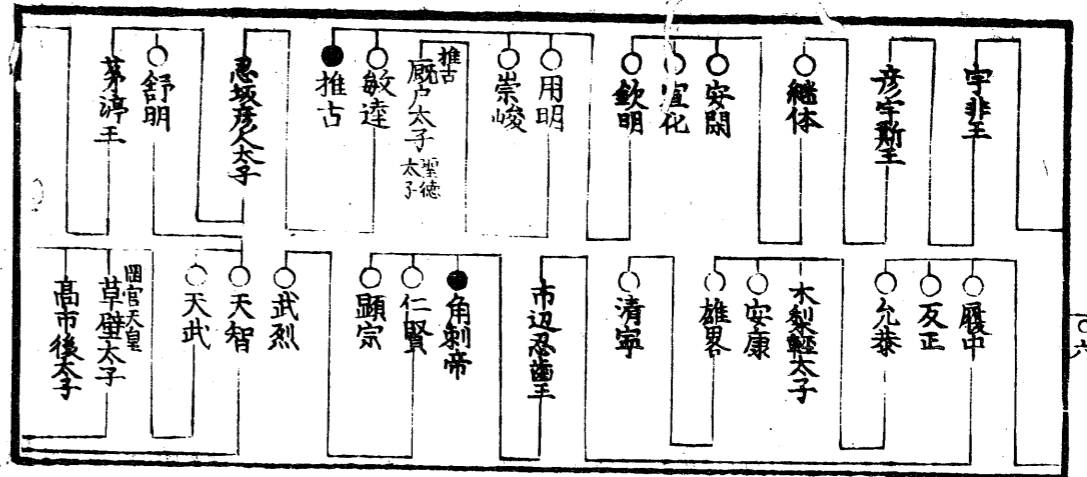 宇非王
彦宇斯王
継体
安閑
宣化
欽明
用明
崇峻
推古
厩戸太子
聖徳
太子
敏達
推古
忍坂彦人太子
舒明
茅渟王
履中
反正
允恭
木梨軽太子
安康
雄畧
清寧
市辺忍歯王
角刺帝
仁賢
顕宗
武烈
天智
天武
岡宮天皇
草壁太子
高市後太子
一〇六